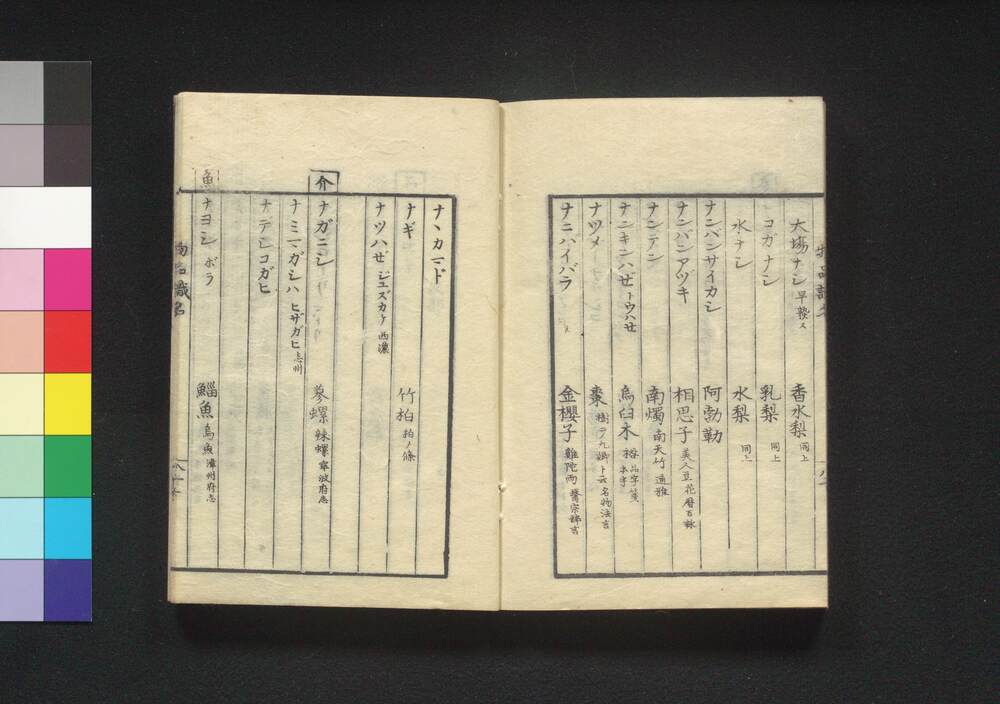 大塲ナシ 早熟ス 香水梨 同上
コガナシ 乳梨 同上
水ナシ 水梨 同上
ナンバンサイカシ 阿勃勒
ナンバンアヅキ 相思子 美人豆 花暦百詠
ナンテン 南燭 南天竹 通雅
ナンキンハゼ トウハゼ 烏臼木 榕 品字箋 本字
ナツメ 棗 樹ヲ九卿ト云 名物法言
ナニハイバラ 金櫻子 難陀雨 醫宗粹言
ナヽカマド
ナギ 竹柏 柏ノ條
ナツハゼ ジエズカケ 西濃
介
ナガニシ 蓼螺 辣螺 寧波府志
ナミマガシハ ヒザガヒ 志州
ナデシコガヒ
魚
ナヨシ ボラ 鯔魚 烏魚 漳州府志
物品識名